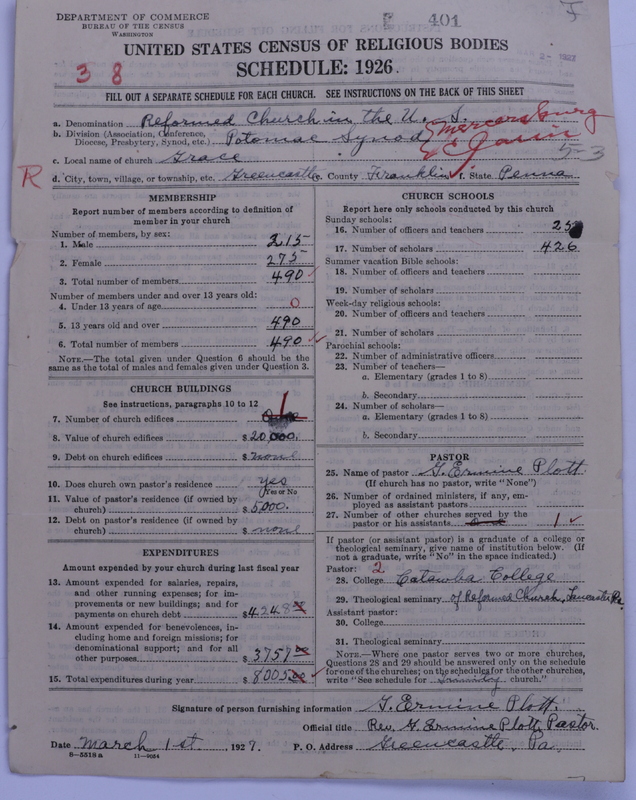 DEPARTMENT OF COMMERCE
BUREAU OF THE CENSUS
WASHINGTON
401
UNITED STATES CENSUS OF RELIGIOUS BODIES
SCHEDULE: 1926.
3 8
FILL OUT A SEPARATE SCHEDULE FOR EACH CHURCH. SEE INSTRUCTIONS ON THE BACK OF THIS SHEET
a. Denomination Reformed Church in the U. S.
b. Division (Association, Conference, Diocese, Presbytery, Synod, etc.) Potomac Synod
Mercersburg
5-3
c. Local name of church Grace
R
d. City, town, village, or township, etc. Greencastle e. County Franklin f. State Penna
MEMBERSHIP
Report number of members according to definition of
member in your church
Number of members, by sex:
1. Male 215
2. Female 275
3. Total number of members 490
Number of members under and over 13 years old:
4. Under 13 years of age 0
5. 13 years old and over 490
6. Total number of members 490
NOTE.—The total given under Question 6 should be the
same as the total of males and females given under Question 3.
CHURCH BUILDINGS
See instructions, paragraphs 10 to 12
7. Number of church edifices 1
8. Value of church edifices $20,000.
9. Debt on church edifices $none
10. Does church own pastor's residence yes
Yes or No
11. Value of pastor's residence (if owned by
church) $5,000.
12. Debt on pastor's residence (if owned by
church) $none
EXPENDITURES
Amount expended by your church during last fiscal year
13. Amount expended for salaries, repairs,
and other running expenses; for im-
provements or new buildings; and for
payments on church debt $4248
14. Amount expended for benevolences, in-
cluding home and foreign missions; for
denominational support; and for all
other purposes $3757
15. Total expenditures during year $8005
CHURCH SCHOOLS
Report here only schools conducted by this church
Sunday schools:
16. Number of officers and teachers
17. Number of scholars 426
Summer vacation Bible schools:
18. Number of officers and teachers
19. Number of scholars
Week-day religious schools:
20. Number of officers and teachers
21. Number of scholars
Parochial schools:
22. Number of administrative officers
23. Number of teachers—
a. Elementary (grades 1 to 8)
b. Secondary
24. Number of scholars—
a. Elementary (grades 1 to 8)
b. Secondary
PASTOR
25. Name of pastor G. Ermine Plott
(If church has no pastor, write "None")
26. Number of ordained ministers, if any, em-
ployed as assistant pastors
27. Number of other churches served by the
pastor or his assistants 1
If pastor (or assistant pastor) is a graduate of a college or
theological seminary, give name of institution below. (If
not a graduate, write "No" in the space indicated.)
Pastor: 2
28. College Catawba College
29. Theological seminary of Reformed Church, Lancaster Pa.
Assistant pastor:
30. College
31. Theological seminary
NOTE.—Where one pastor serves two or more churches,
Questions 28 and 29 should be answered only on the schedule
for one of the churches; on the schedules for the other churches,
write "See schedule for church."
Signature of person furnishing information G. Ermine Plott.
Official title Rev. G. Ermine Plott, Pastor.
Date March 1st, 1927. P. O. Address Greencastle, Pa.
8-5518a 11-9054